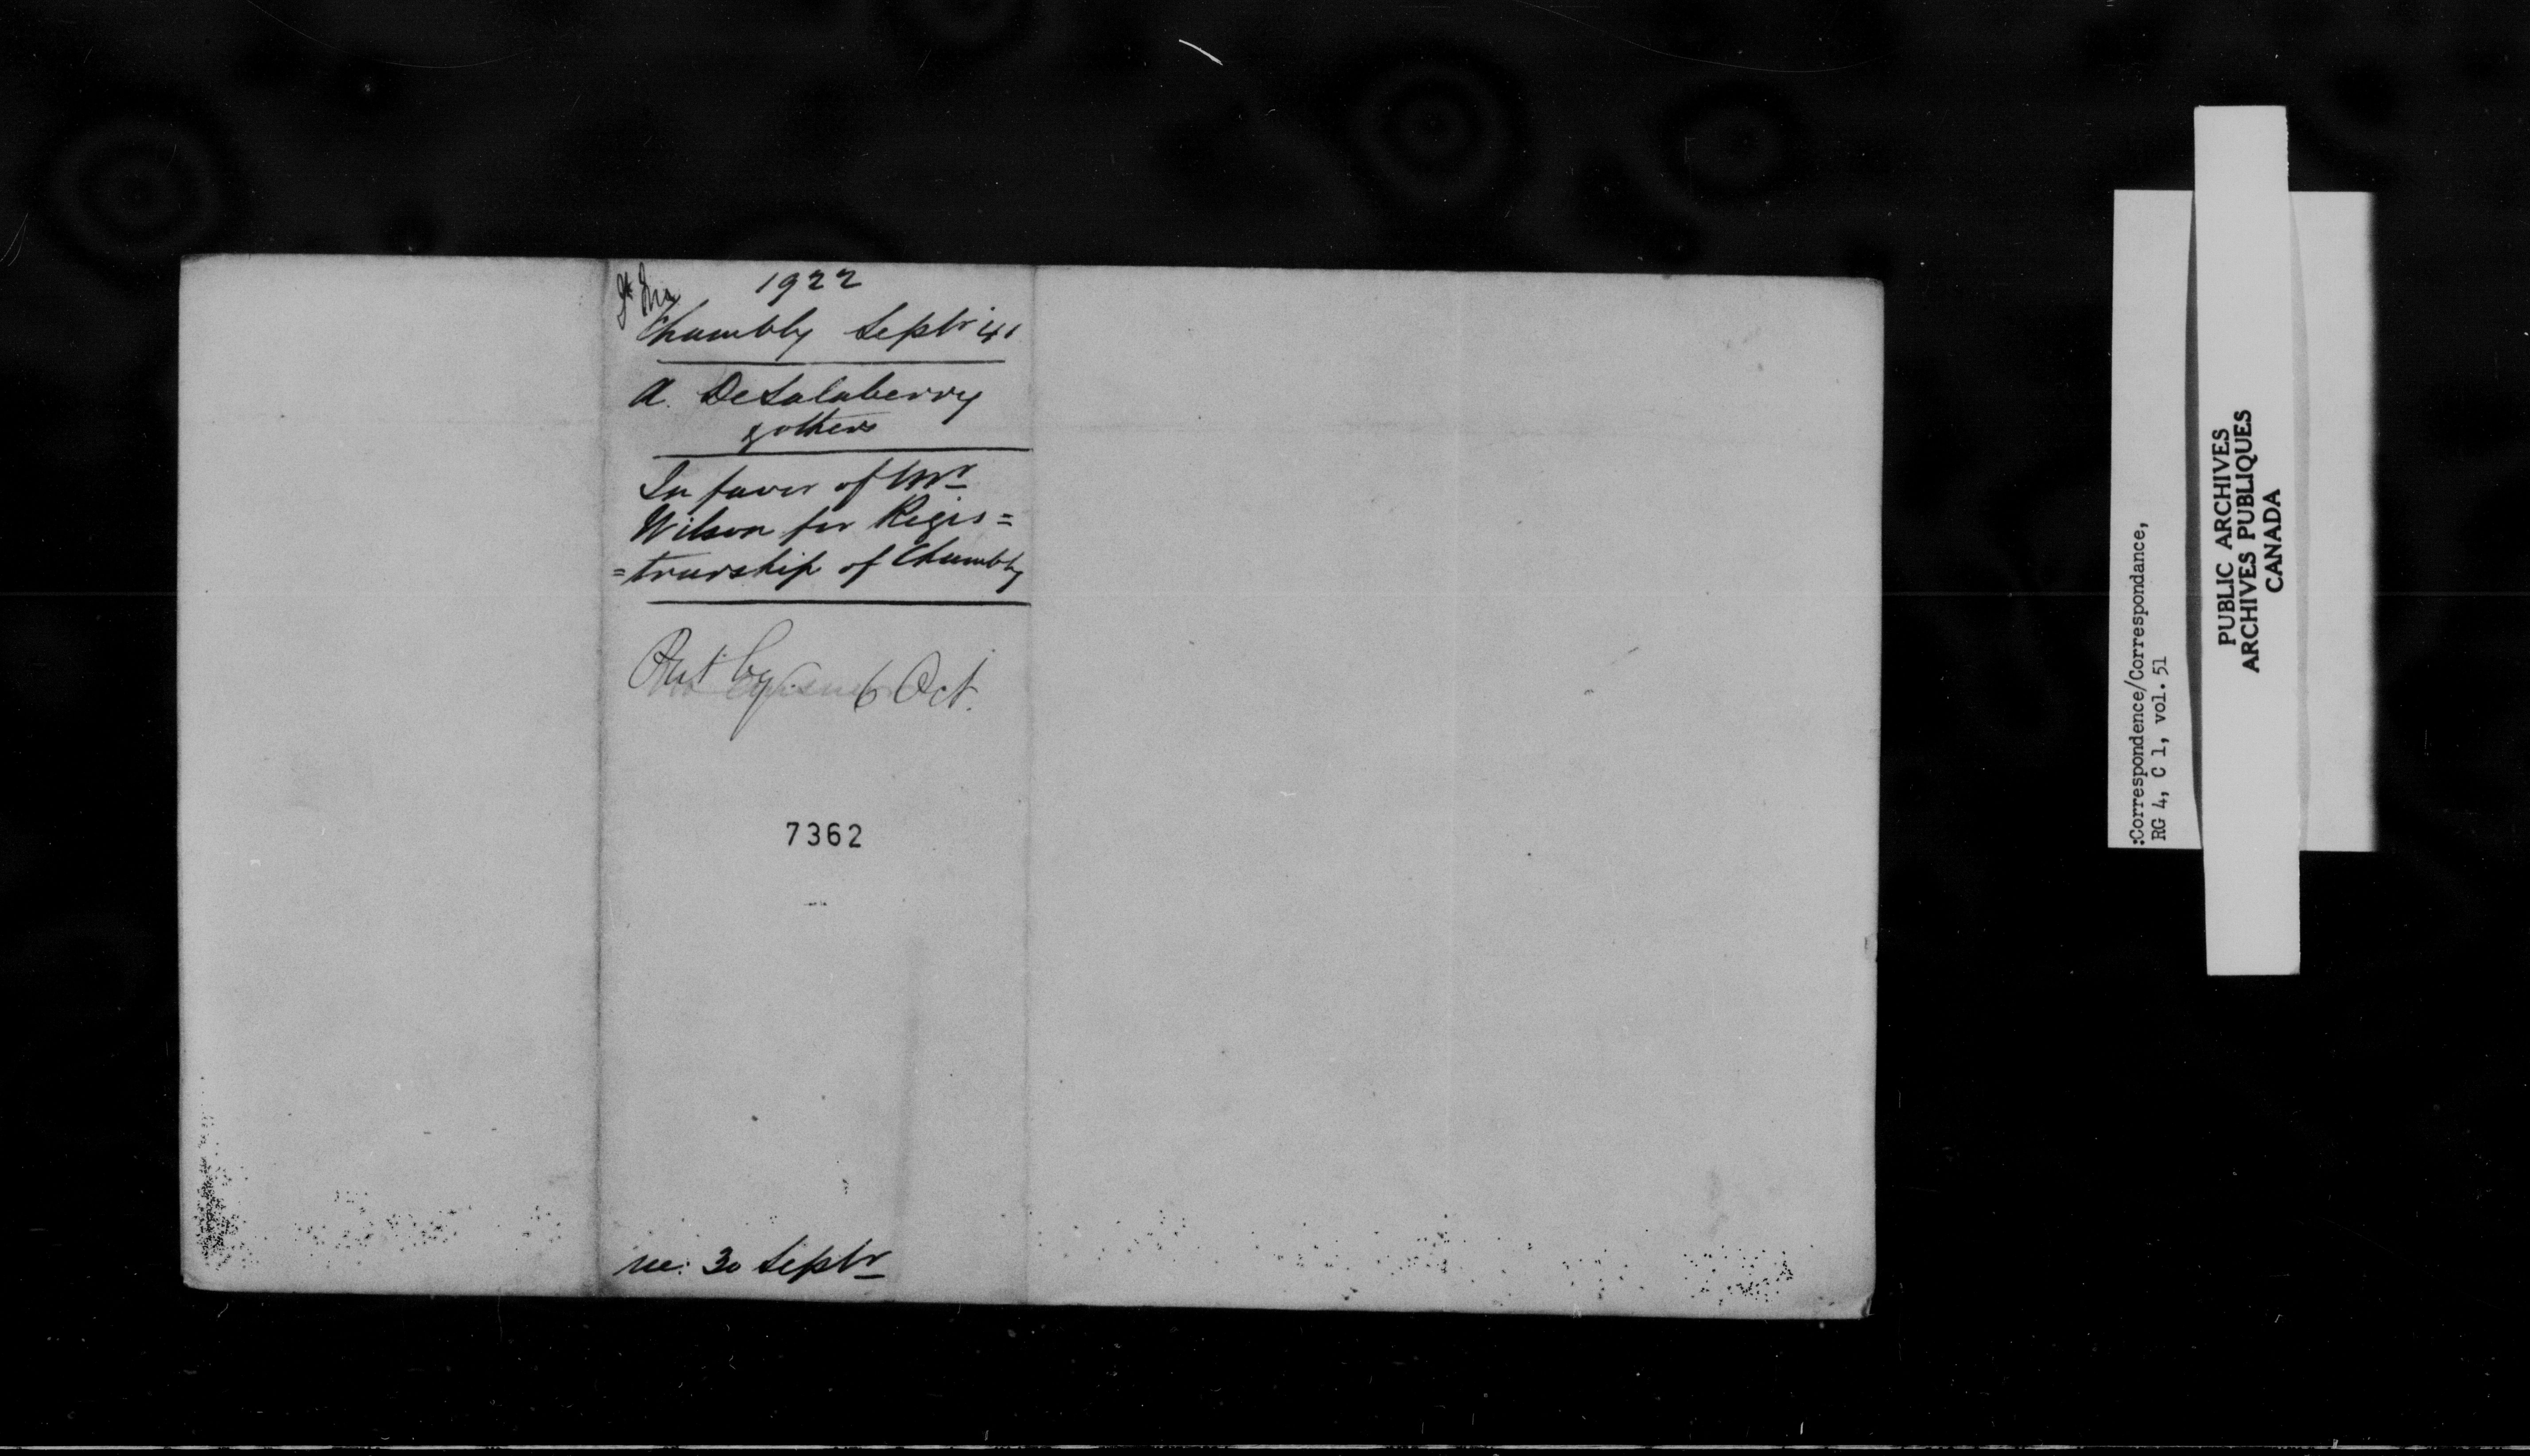 1922
Chambly Septr 41
A. DeSalaberry
& others
In favor of Mr
Wilson for Regis=
=trarship of Chambly
Put by. 6 Oct.
7362
rec: 30 Septr
:Correspondence/Correspondance,
RG 4, C 1, vol. 51
PUBLIC ARCHIVES
ARCHIVES PUBLIQUES
CANADA